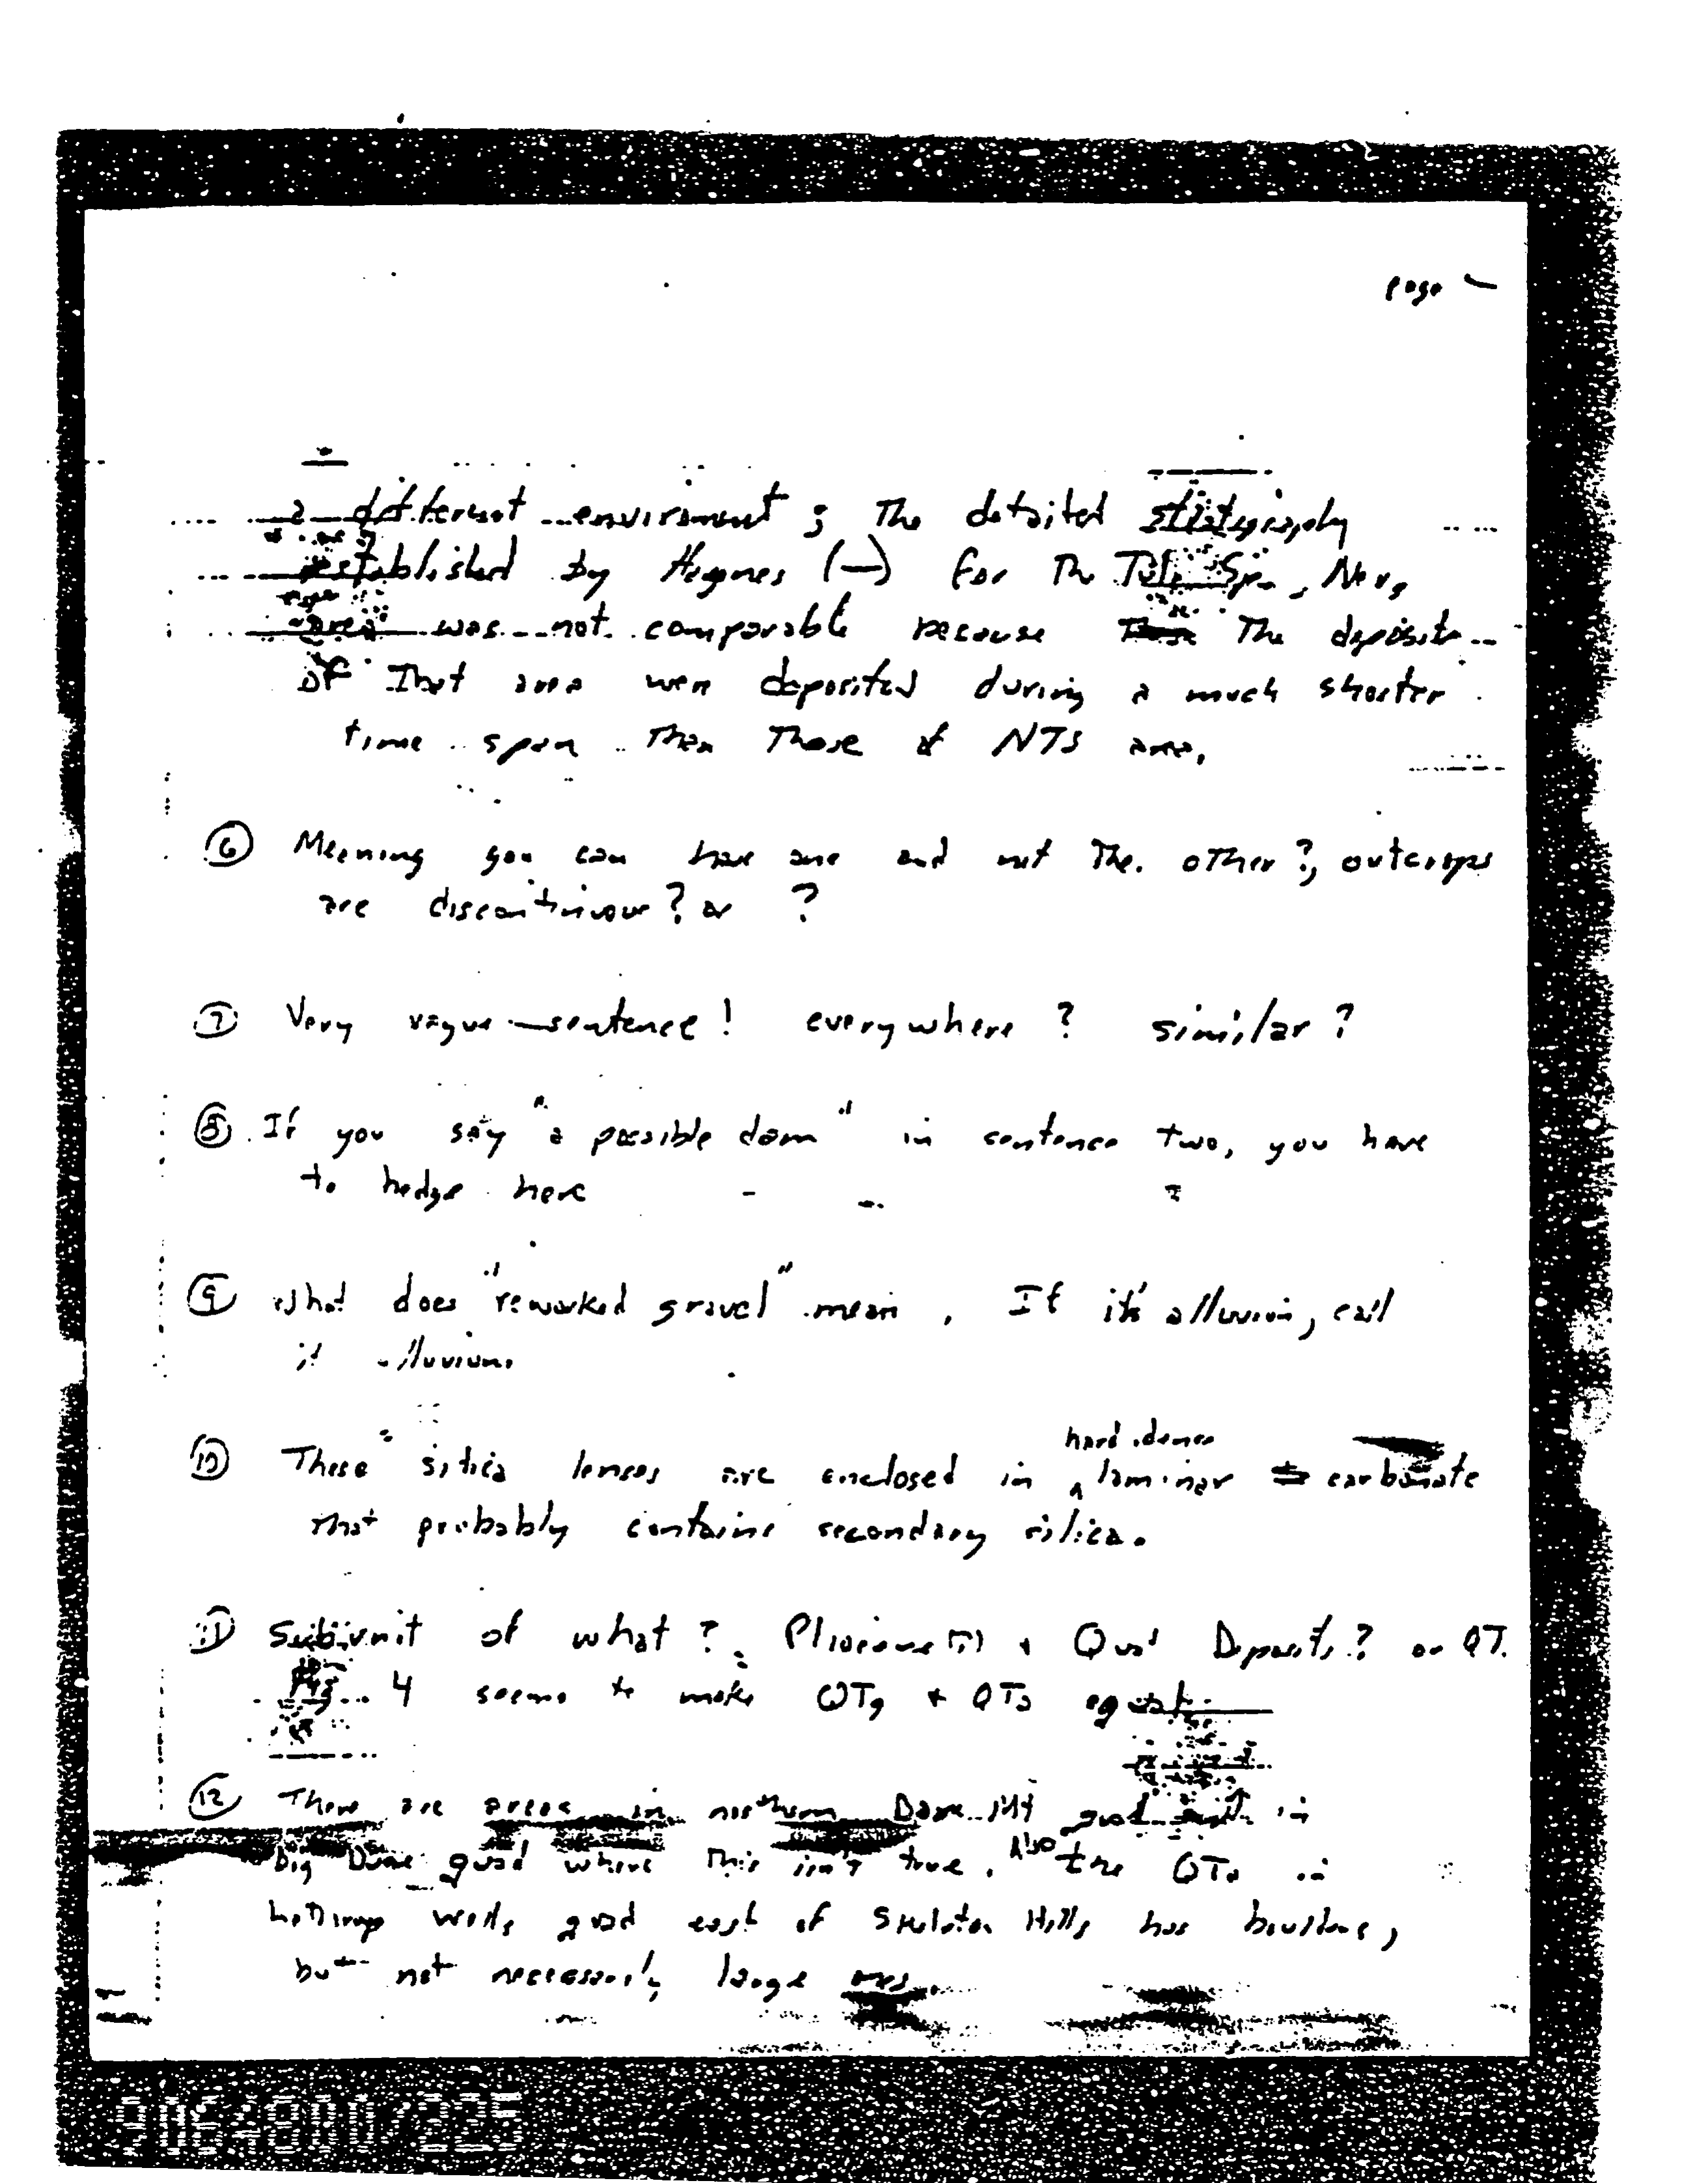 page
a different environment; The detailed stratigraphy
established by Haynes (—) for The Tule Spr., Nev,
area was not comparable because The deposits
of That area were deposited during a much shorter
time span Than Those of NTS area.
⑥ Meaning you can have one and not The other?, outcrops
are discontinuous? or ?
⑦ Very vague sentence! everywhere? similar?
⑧ If you say "a possible dam" in sentence two, you have
to hedge here
⑨ What does "reworked gravel" mean. If it's alluvium, call
it alluvium.
hard, dense
⑩ These silica lenses are enclosed in ^ laminar carbonate
That probably contains secondary silica.
⑪ Subunit of what? Pliocene(?) + Quat Deposits? or QT.
4 seems to make QTg + QTa equal.
⑫ There are areas in northern quad in
big Dune quad where This isn't true. Also the QTa in
Lathrop Wells quad east of Skeleton Hills has boulders,
but not necessarily large ones.
9064800/225